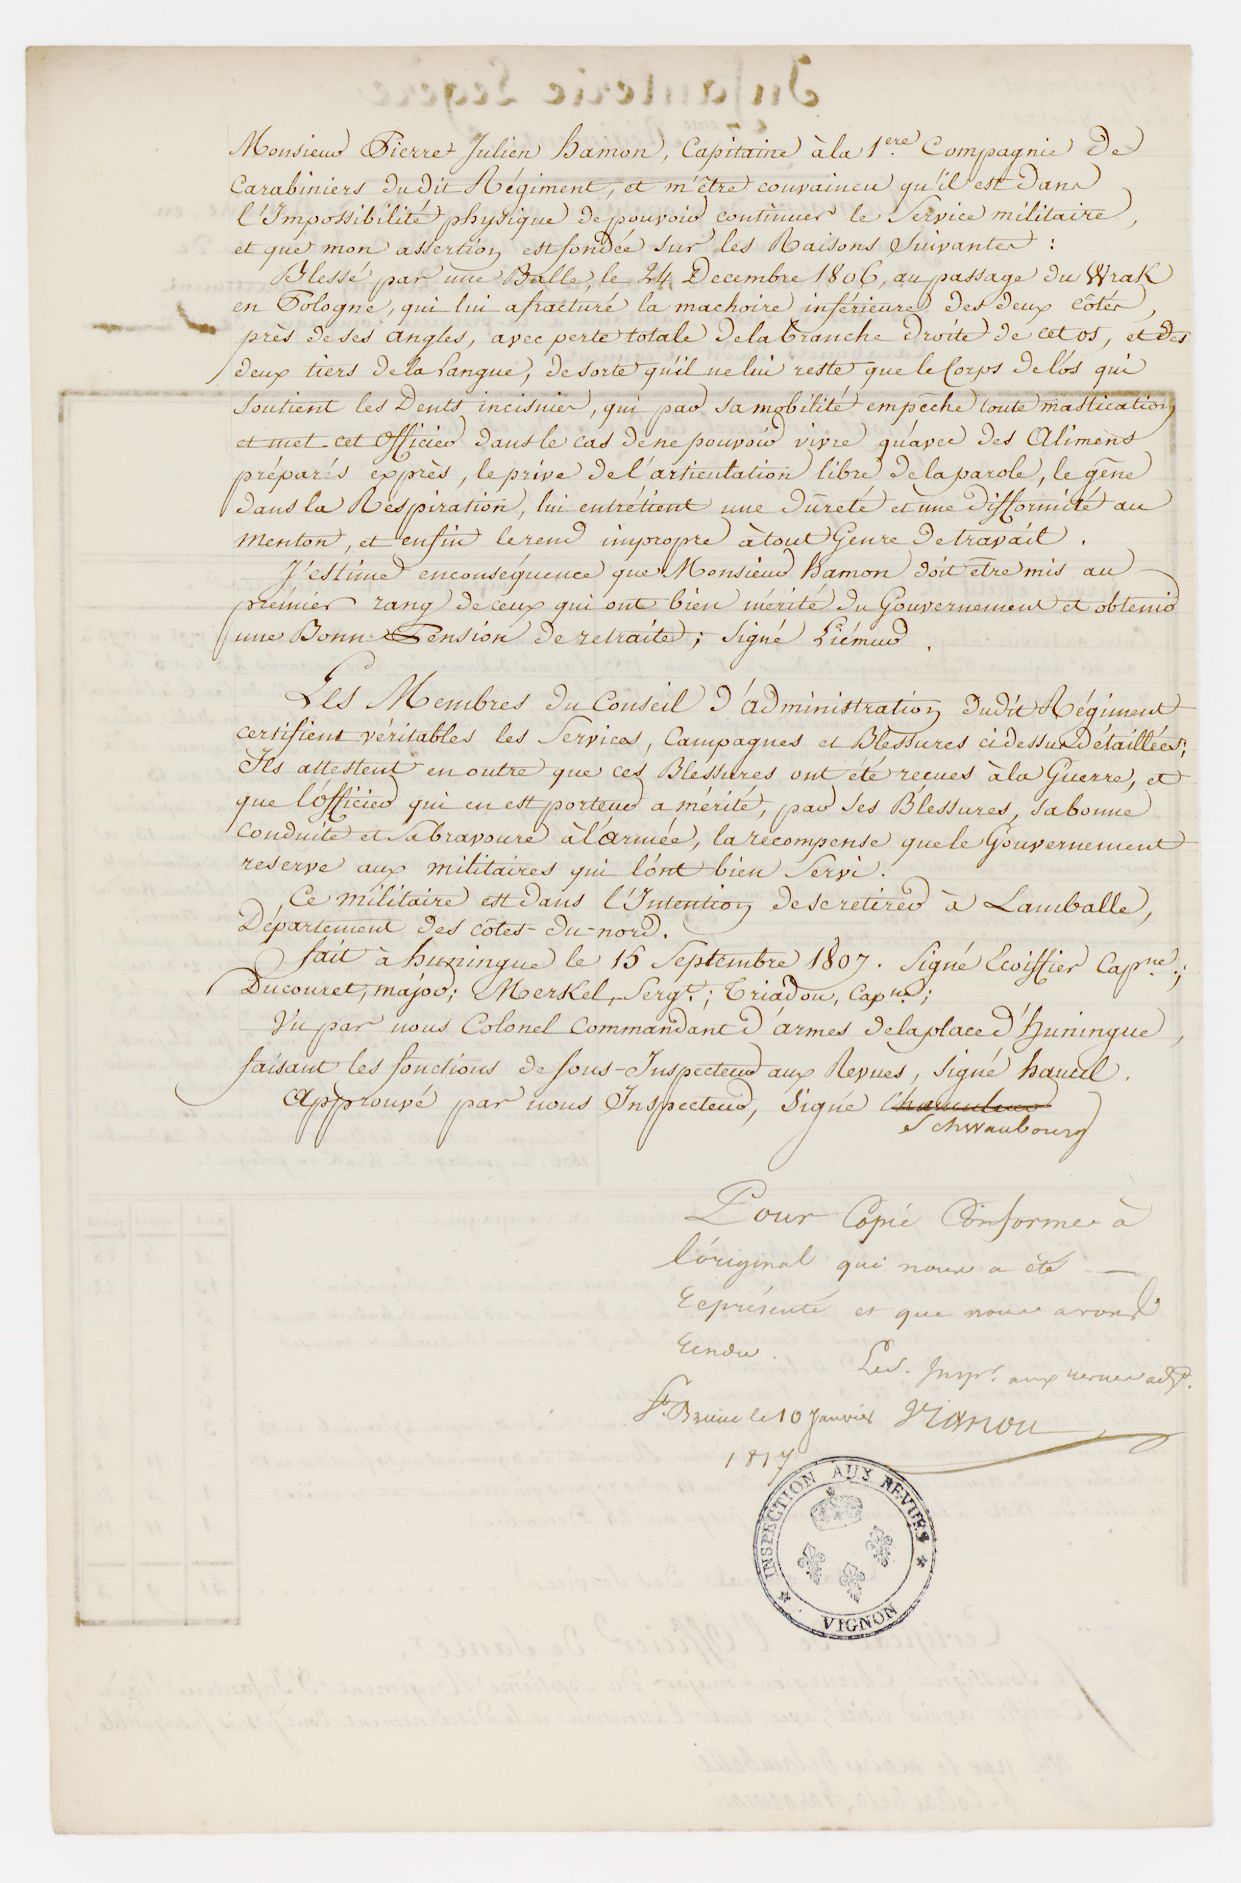 Monsieur Pierre Julien hamon, Capitaine à la 1ere Compagnie de
Carabiniers dudit Régiment, et m'être convaincu qu'il est dans
l'Impossibilité physique de pouvoir continuer le Service militaire,
et que mon assertion est fondée sur les Raisons Suivantes :
Blessé par une Balle, le 24 Decembre 1806, au passage du Wrak
en Pologne, qui lui a fracturé la machoire inférieure des deux côtés,
près de ses angles, avec perte totale de la branche droite de cet os, et des
deux tiers de la Langue, de sorte qu'il ne lui reste que le Corps de l'os qui
soutient les Dents incisives, qui par sa mobilité empêche toute mastication
et met cet Officier dans le cas de ne pouvoir vivre qu'avec des Alimens
préparés exprès, le prive de l'articulation libre de la parole, le gêne
dans la Respiration, lui entrétient une dûreté et une difformité au
menton, et enfin le rend impropre à tout Genre de travail .
J'estime en conséquence que Monsieur hamon doit etre mis au
prémier rang de ceux qui ont bien mérité du Gouvernement et obtenir
une Bonne Pension de retraite ; Signé Liémud .
Les Membres du Conseil d'administration dudit Régiment
certifient véritables les Services, Campagnes et Blessures ci dessus détaillées;
Ils attestent en outre que ces Bléssures ont été recues à la Guerre, et
que l'officier qui en est porteur a mérité, par ses Blessures, sa bonne
conduite et sa bravoure à l'armée, la récompense que le Gouvernement
reserve aux militaires qui l'ont bien Servi .
Ce militaire est dans l'Intention de se retirer à Lamballe,
Département des côtes-du-nord.
fait à huningue le 15 Septembre 1807 . Signé Ecoiffier Capne;
Ducouret, major; Merkel, Sergt; Triadou, Capne;
Vu par nous Colonel Commandant d'armes de la place d'huningue,
faisant les fonctions de sous-Inspecteur aux Revues, Signé
Approuvé par nous Inspecteur, Signé
Schwaubourg
Pour Copie Conforme à
l'original qui nous a été
représenté et que nous avons
rendu .
Le s. Inspr. aux revues adjt.
St. Brieuc le 10 Janvier
1817
INSPECTION AUX REVUES
VIGNON